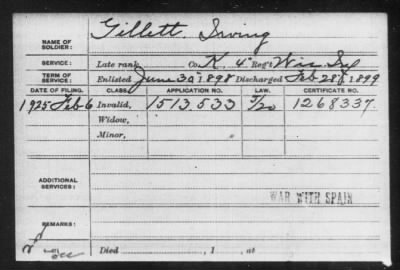 Gillett, Irving
NAME OF SOLDIER:
SERVICE: Late rank, Co. K, 4" Reg't Wis. Inf
TERM OF SERVICE: Enlisted June 30", 1898 Discharged Feb 28", 1899
DATE OF FILING. CLASS. APPLICATION NO. LAW. CERTIFICATE NO.
1925 Feb 6 Invalid, 1513533 5/20 1268337
Widow,
Minor,
ADDITIONAL SERVICES:
WAR WITH SPAIN
REMARKS:
Died , 1 , at